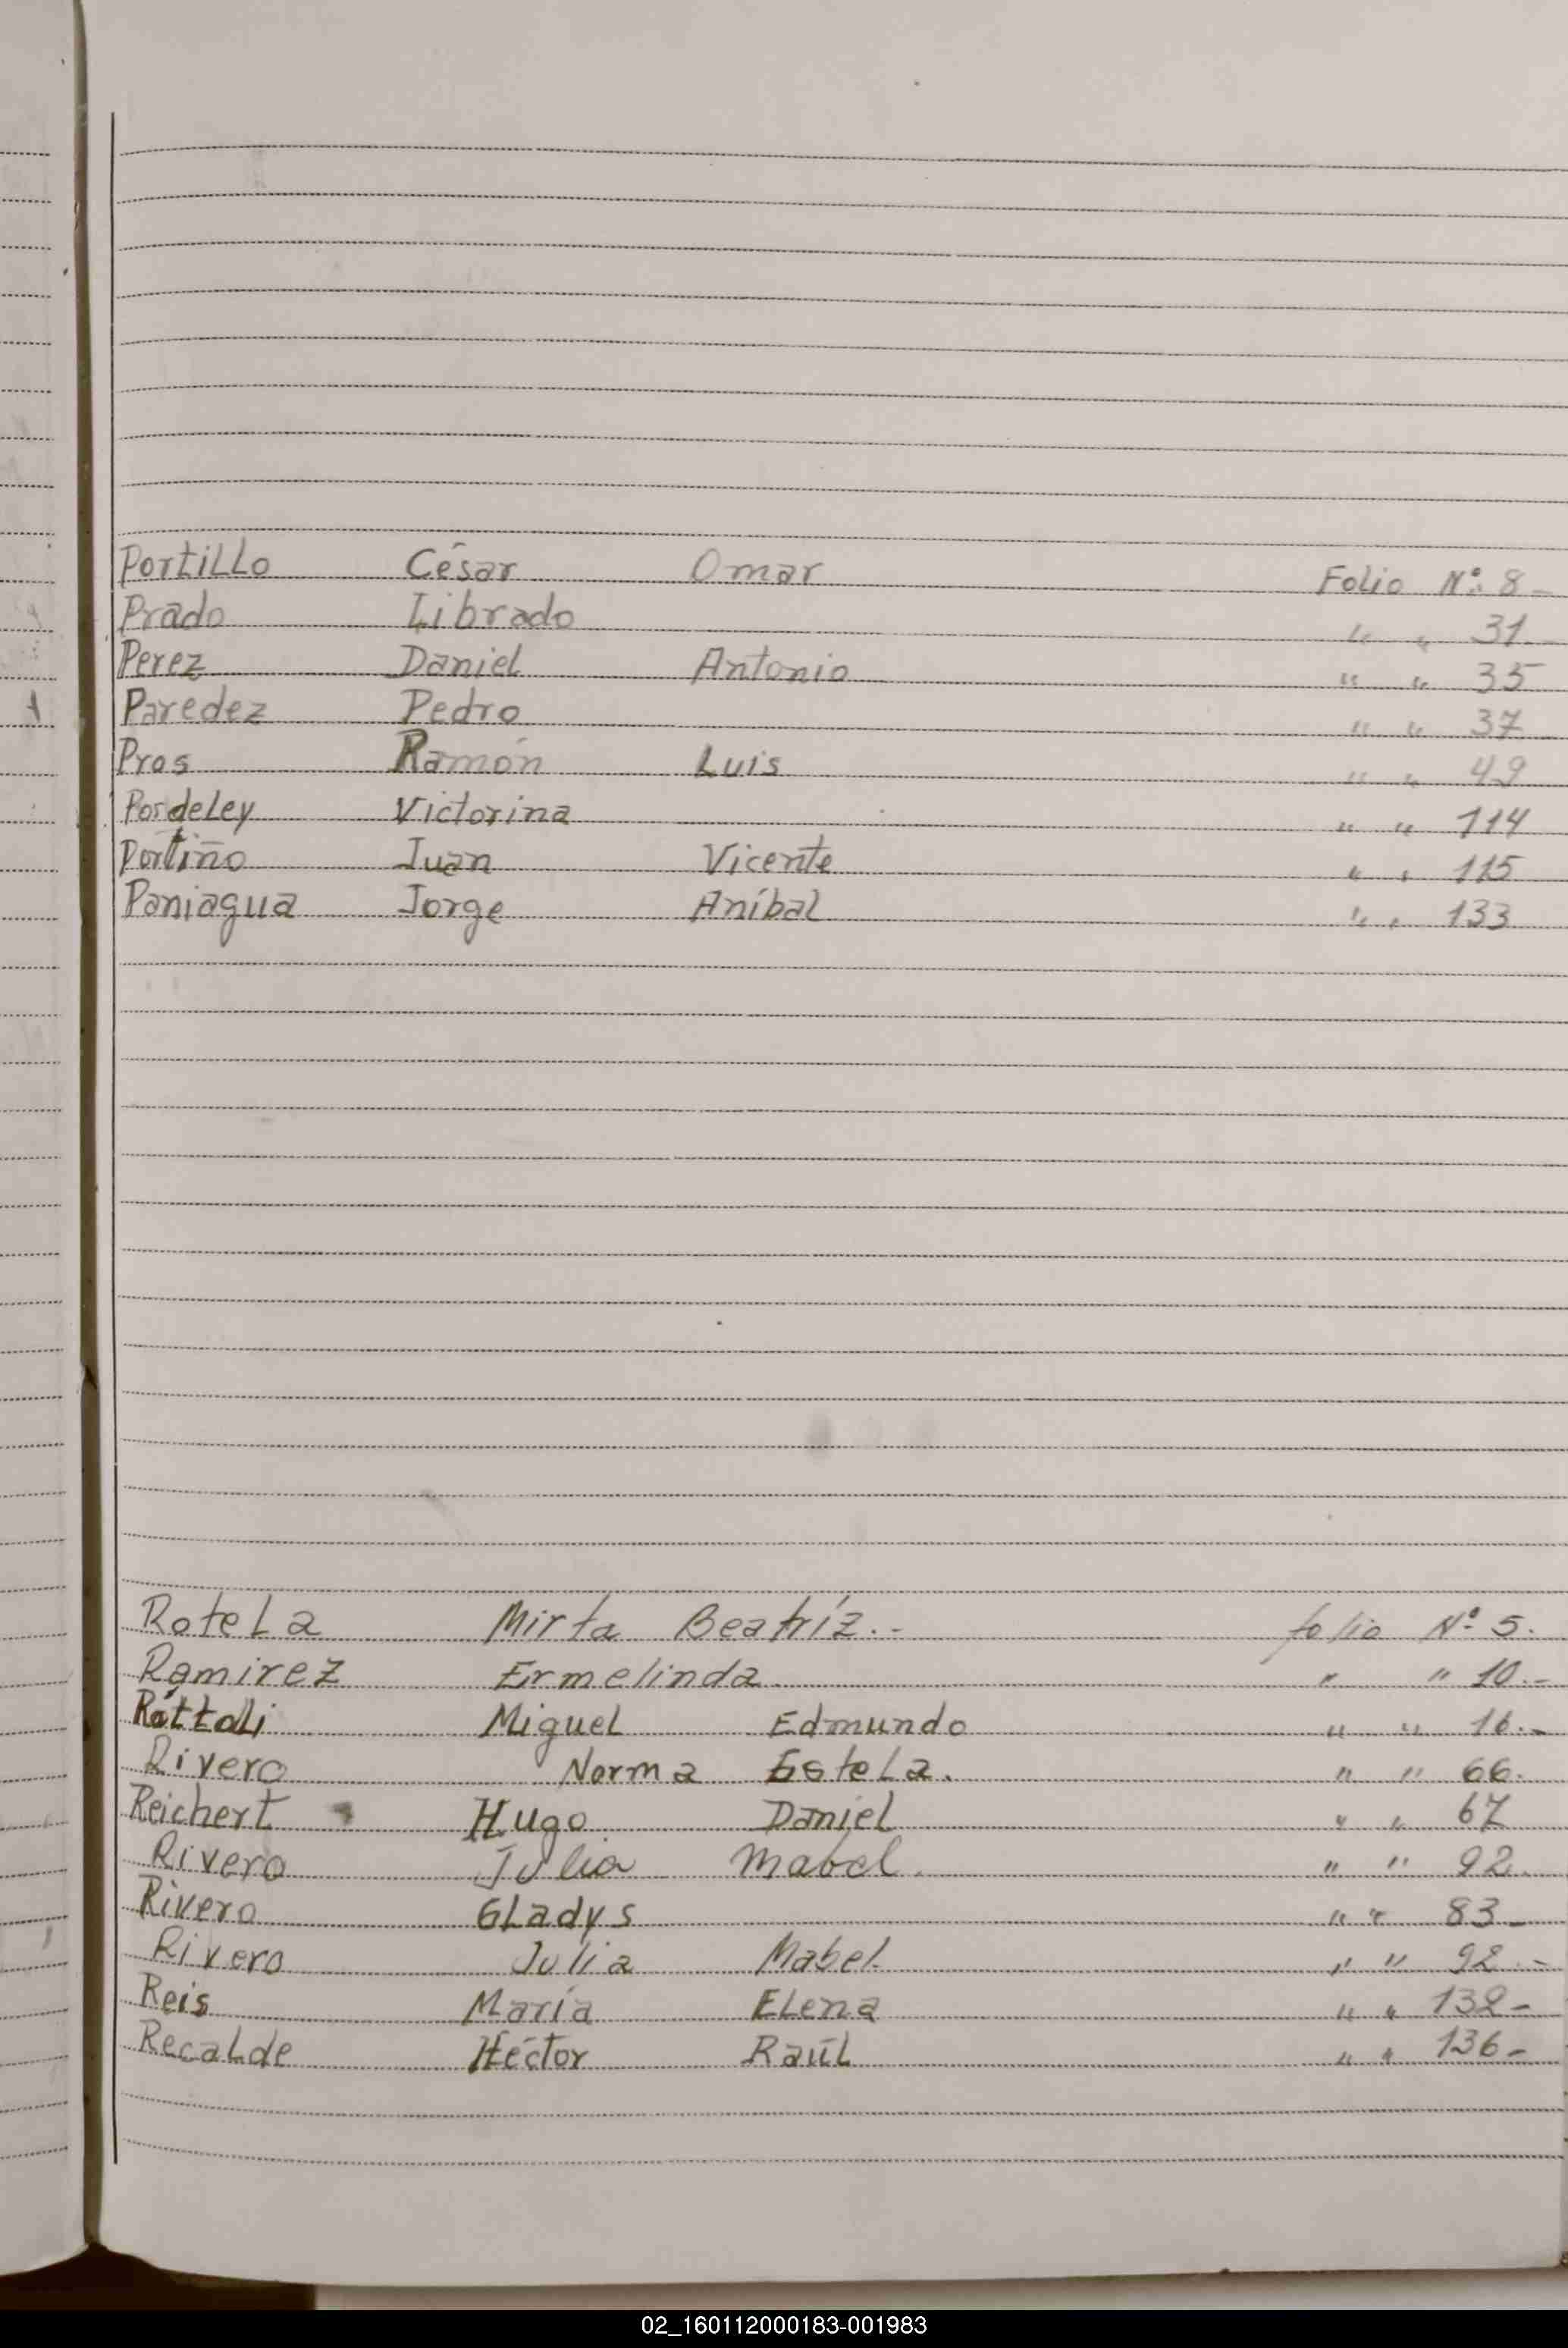 Portillo César Omar Folio Nº 8 -
Prado Librado " " 31 -
Perez Daniel Antonio " " 35
Paredez Pedro " " 37
Pros Ramón Luis " " 49
Pordeley Victorina " " 114
Portiño Juan Vicente " " 115
Paniagua Jorge Aníbal " " 133
Rotela Mirta Beatríz.- folio Nº 5.
Ramirez Ermelinda " " 10.-
Rottoli Miguel Edmundo " " 16.-
Rivero Norma Estela. " " 66.
Reichert Hugo Daniel " " 67
Rivero Julia Mabel. " " 92.
Rivero Gladys " " 83 -
Rivero Julia Mabel. " " 92.-
Reis María Elena " " 132 -
Recalde Héctor Raúl " " 136 -
02_160112000183-001983